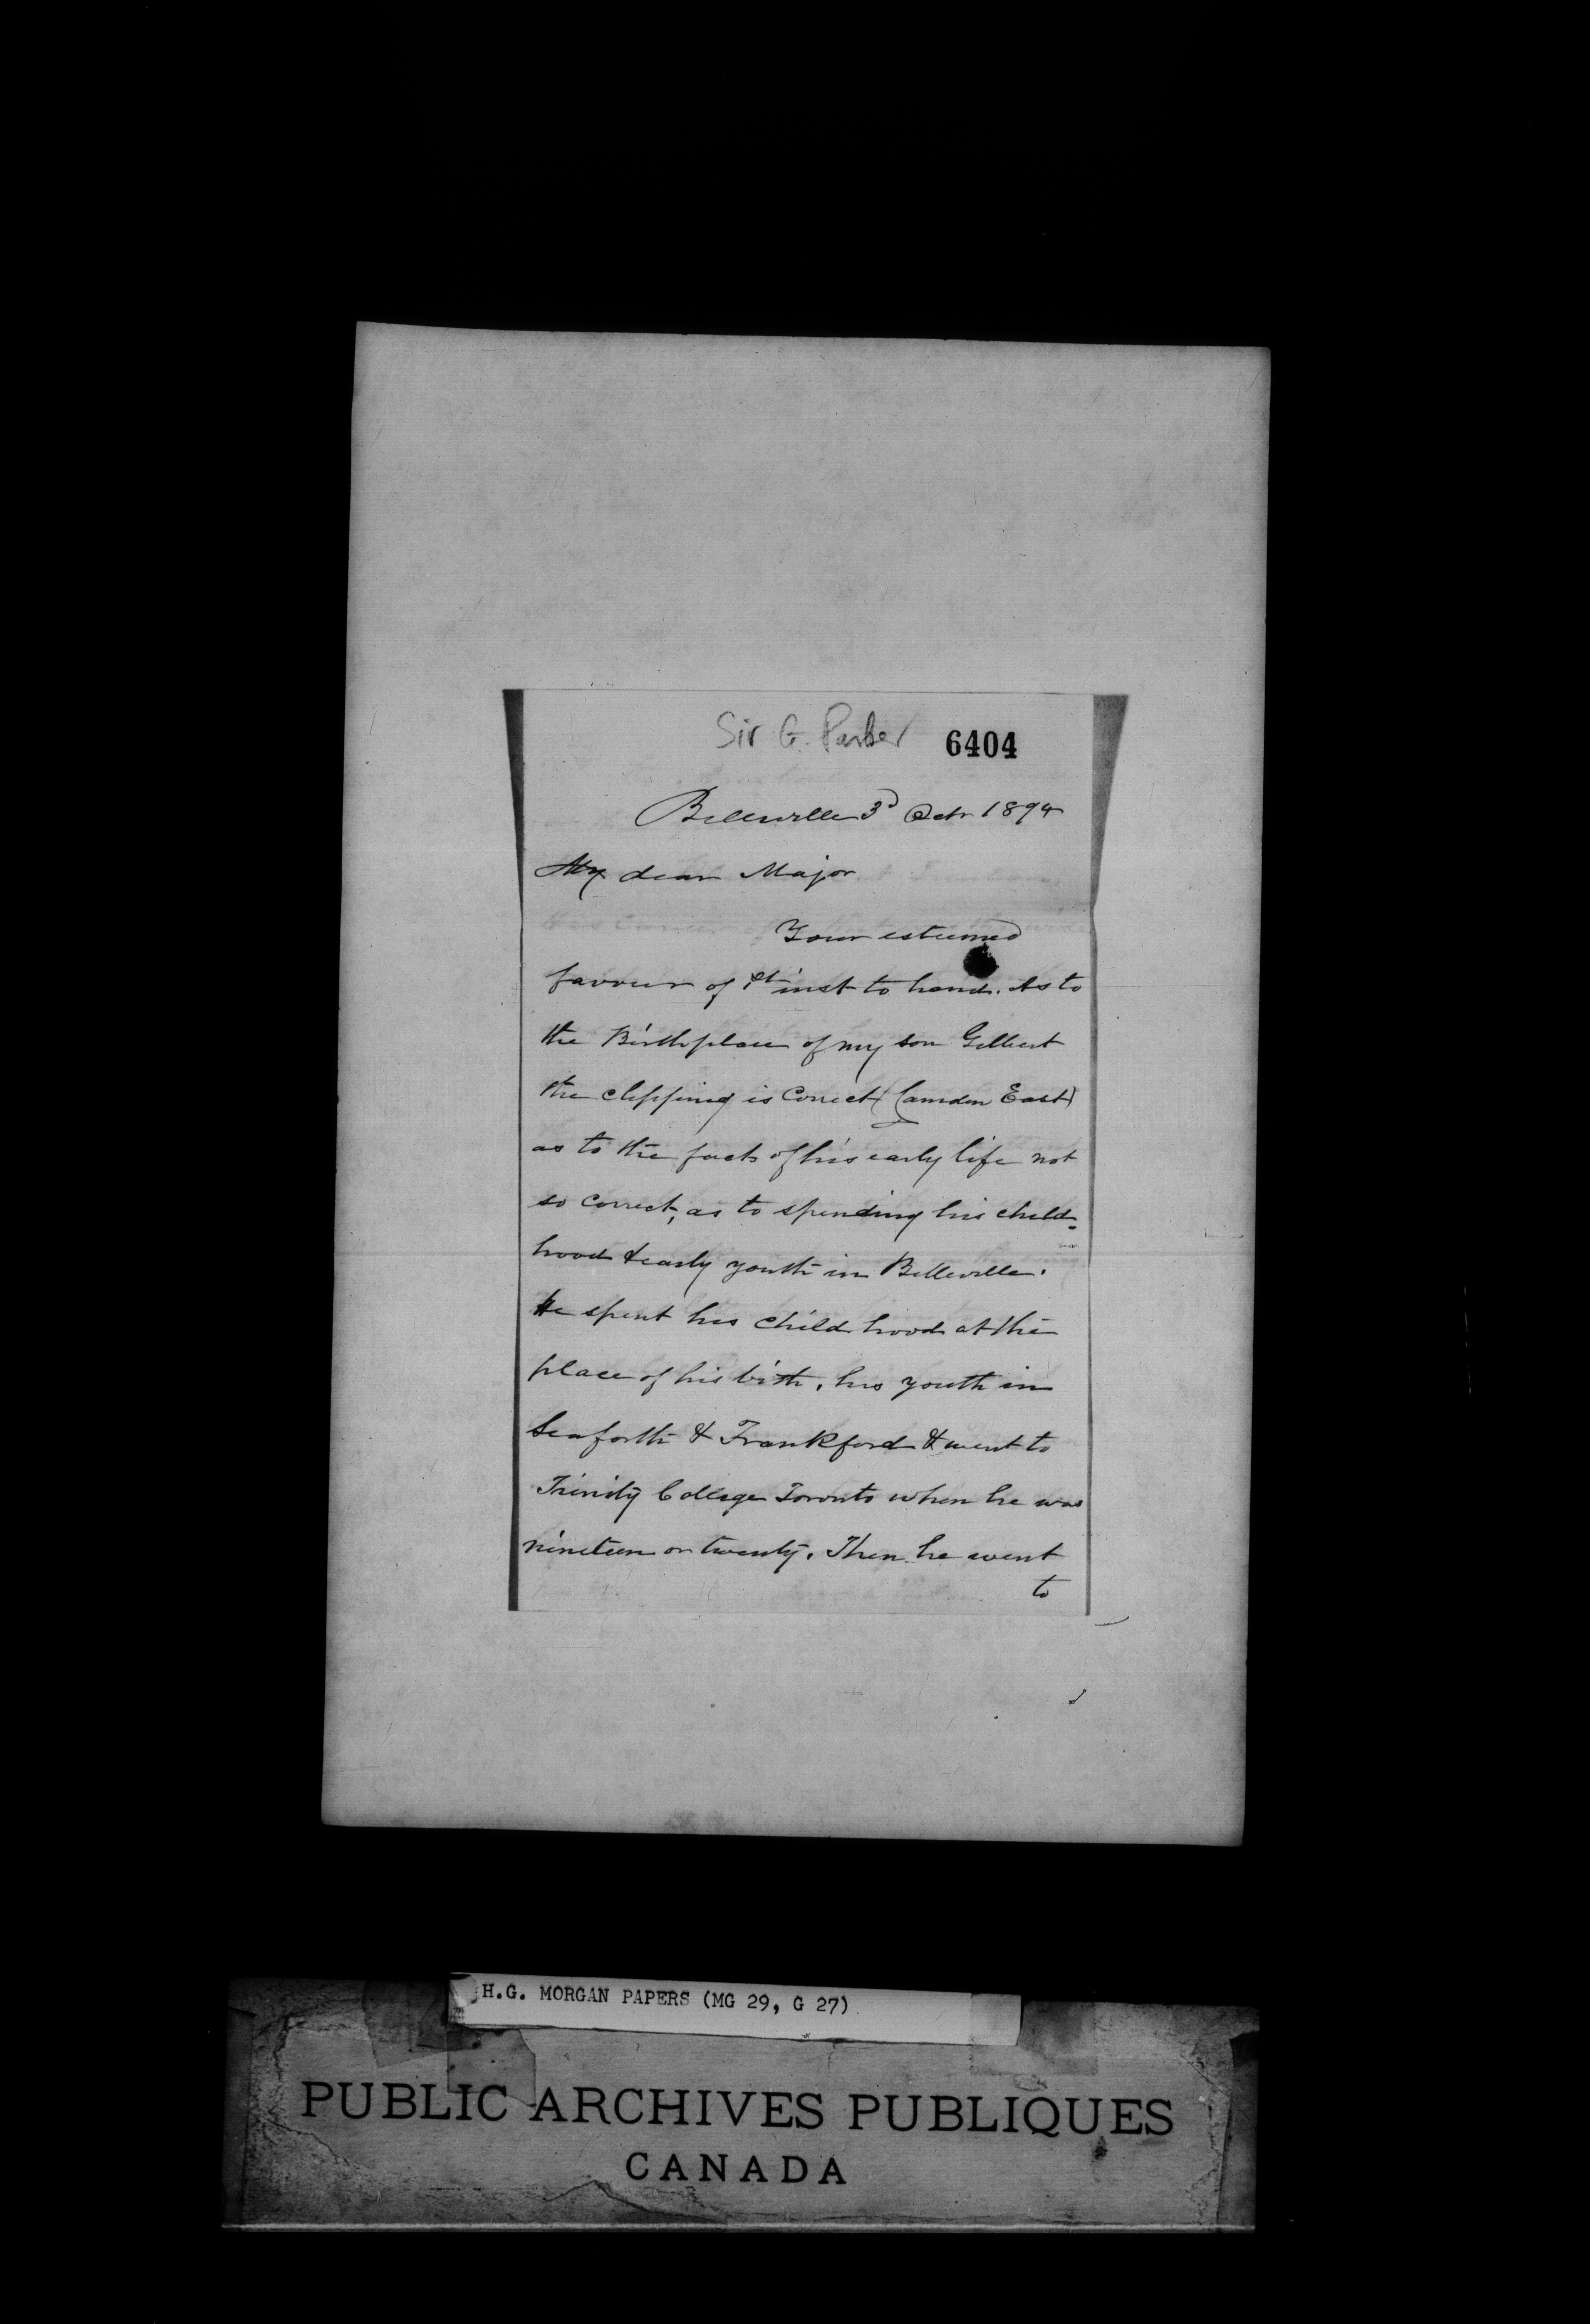 Sir G. Parker 6404
Belleville 3d Octr 1894
My dear Major
Your esteemed
favour of 1st inst to hand. As to
the Birthplace of my son Gilbert
the clipping is Correct (Camden East)
as to the facts of his early life not
so correct, as to spending his child=
hood & early youth in Belleville.
He spent his childhood at the
place of his birth, his youth in
Seaforth & Frankford & went to
Trinity College Toronto when he was
nineteen or twenty. Then he went
to
H.G. MORGAN PAPERS (MG 29, G 27)
PUBLIC ARCHIVES PUBLIQUES
CANADA